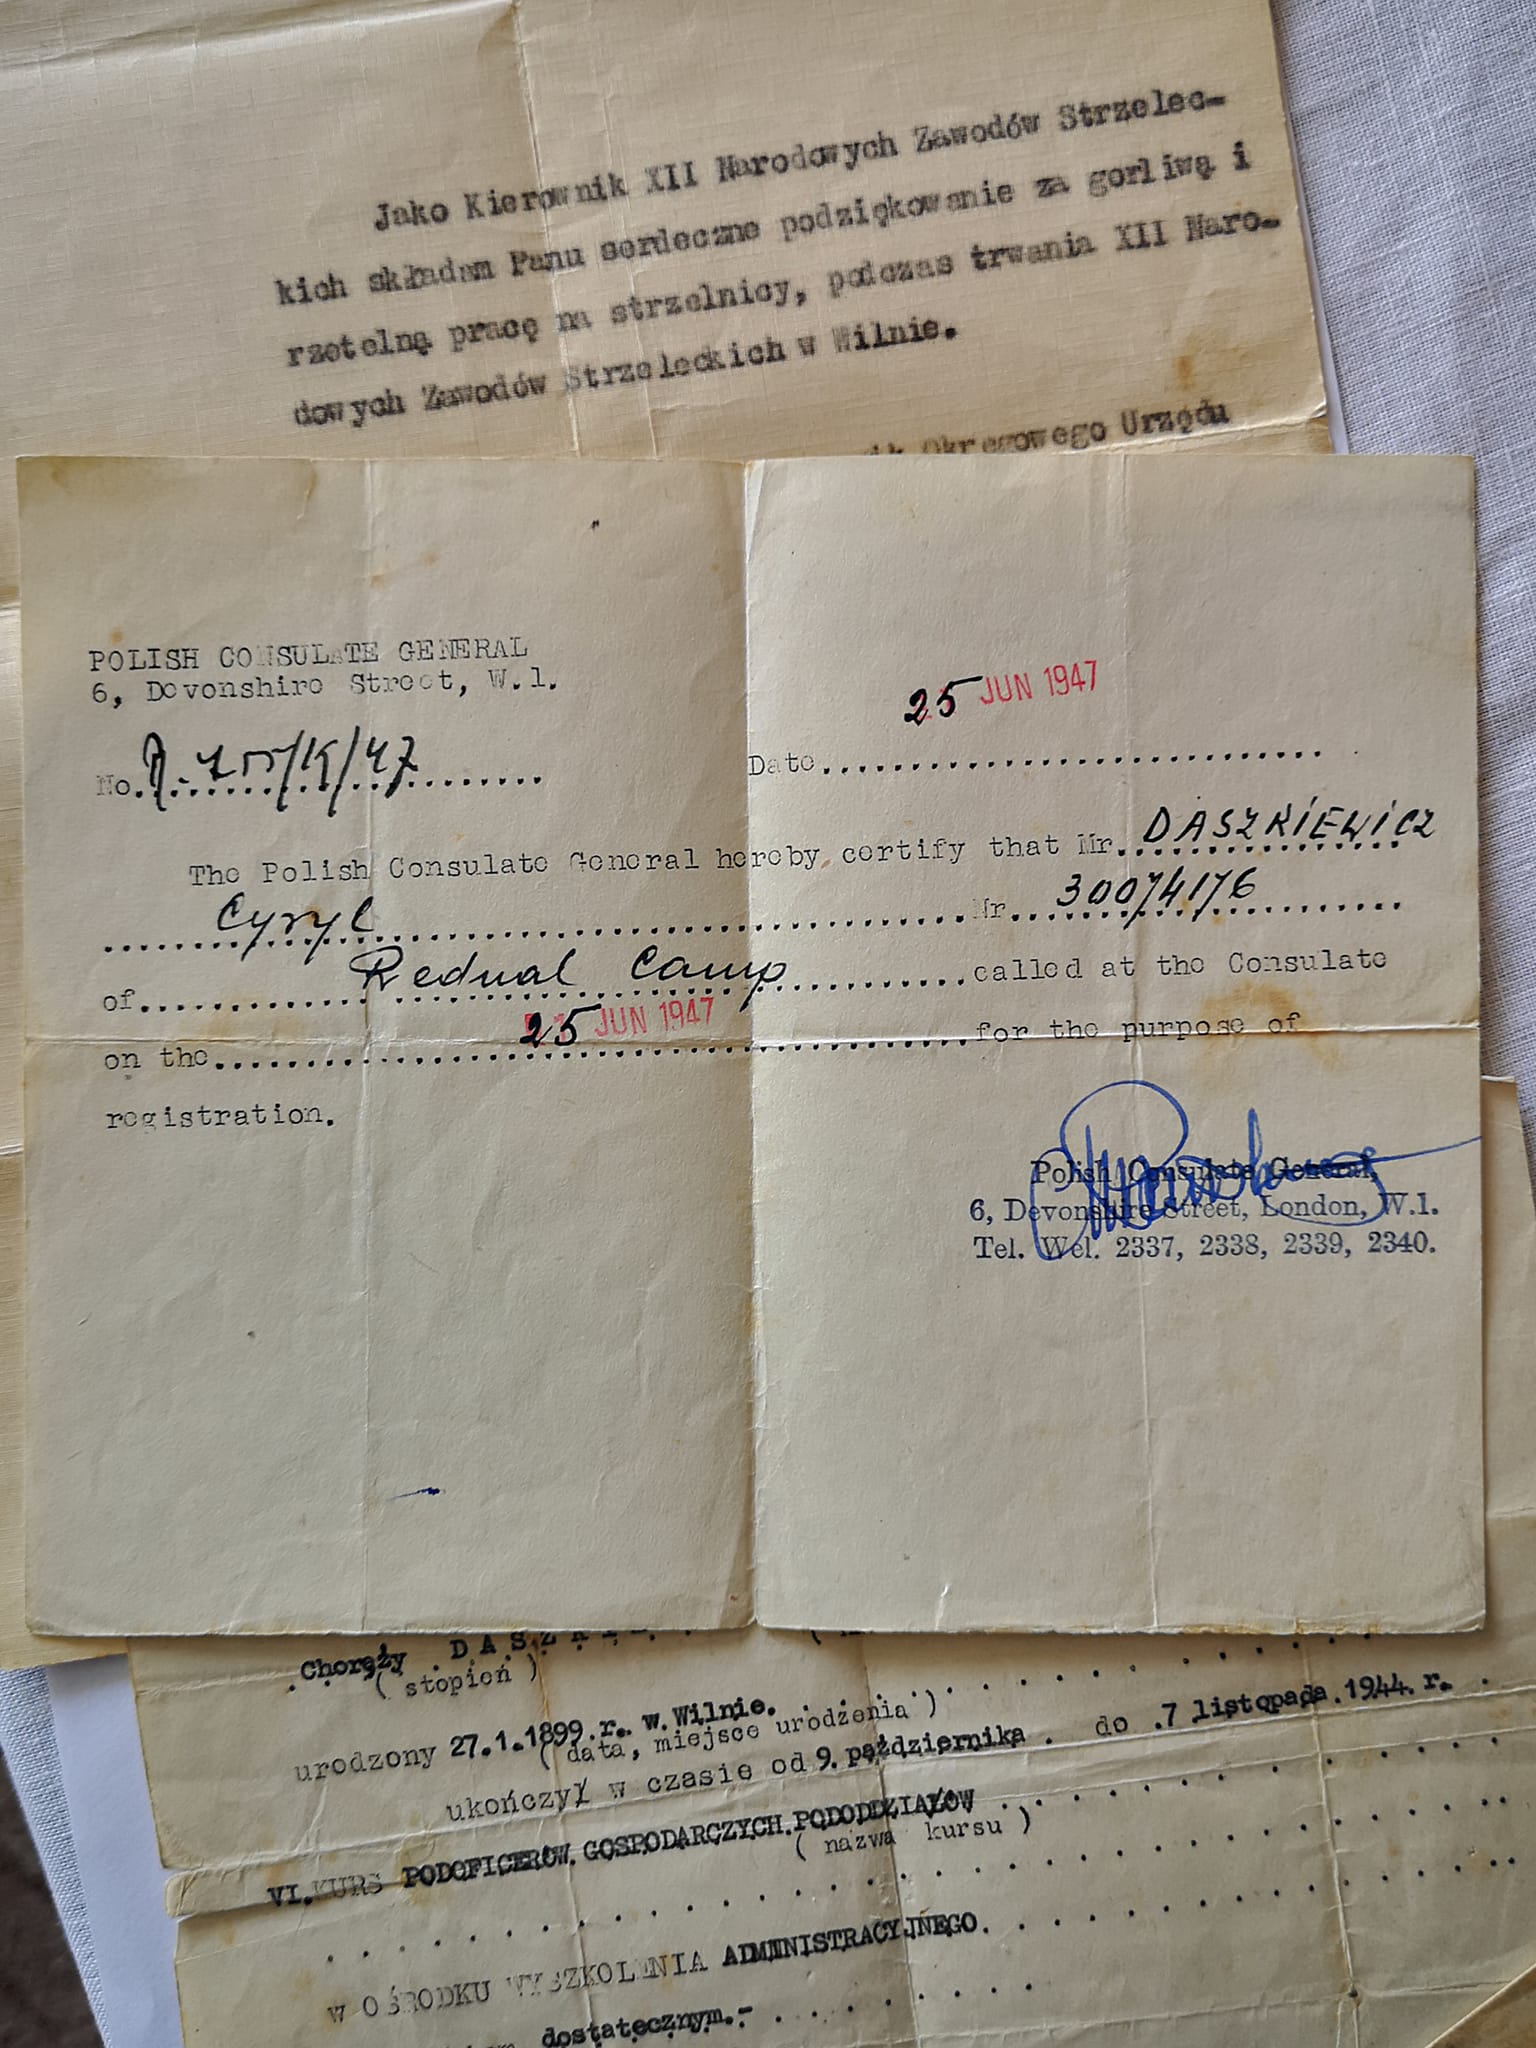 Jako Kierownik XII Narodowych Zawodów Strzelec-
kich składam Panu serdeczne podziękowanie za gorliwą i
rzetelną pracę na strzelnicy, podczas trwania XII Naro-
dowych Zawodów Strzeleckich w Wilnie.
Okręgowego Urzędu
POLISH CONSULATE GENERAL
6, Devonshire Street, W.1.
25 JUN 1947
No. /K/47
Date
The Polish Consulate General hereby certify that Mr. DASZKIEWICZ
Cyryl Nr. 300/41/6
of Rednal Camp called at the Consulate
on the 25 JUN 1947 for the purpose of
registration.
Polish Consulate General,
6, Devonshire Street, London, W.1.
Tel. Wel. 2337, 2338, 2339, 2340.
Chorąży
( stopień )
urodzony 27.1.1899.r. w.Wilnie.
( data, miejsce urodzenia )
ukończył w czasie od 9.października do 7 listopada.1944.r.
VI.KURS PODOFICERÓW.GOSPODARCZYCH.PODODDZIAŁÓW
( nazwa kursu )
w OŚRODKU WYSZKOLENIA ADMINISTRACYJNEGO.
dostatecznym.-